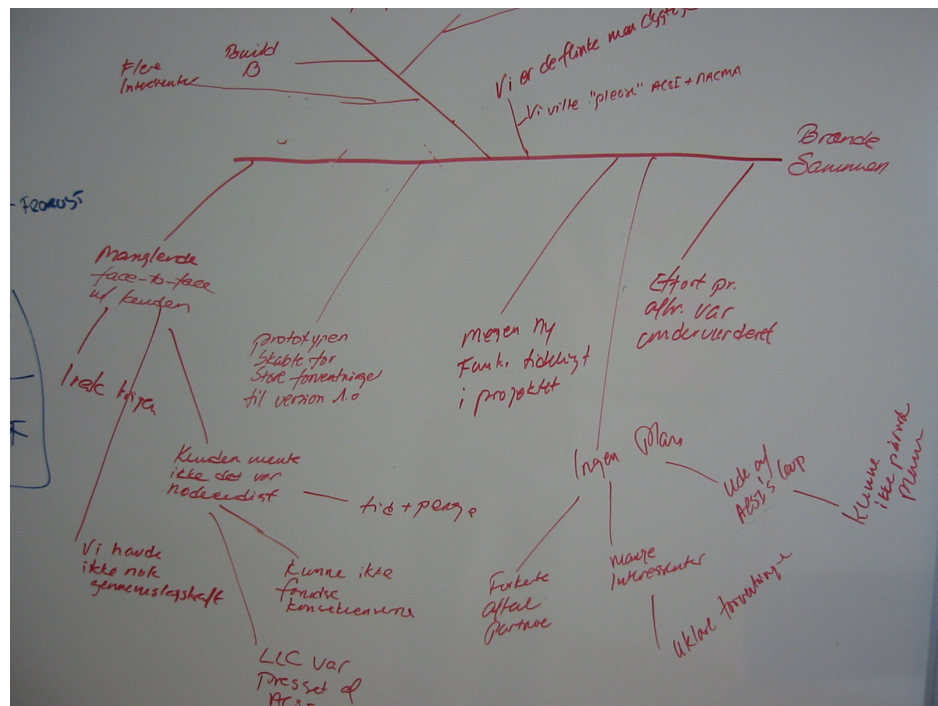 Build
B
Flere
Interessenter
Vi er de flinke
Vi ville "please" ACSI + NACMA
Brænde
Sammen
Manglende
face-to-face
w/ kunden
prototypen
Skabte for
Store forventninger
til version 1.0
Megen ny
Funk. tidligt
i projektet
Effort pr.
var
undervurderet
Irak krigen
Kunden mente
ikke det var
nødvendigt
tid + penge
Vi havde
ikke nok
gennemslagskraft
Kunne ikke
forudse
konsekvenserne
LLC var
presset af
ACSI
Ingen Plan
Ude af
ACSI's loop
Kunne
ikke påvirke
planen
Forkerte
aftale
partnere
mange
Interessenter
uklare forventninger